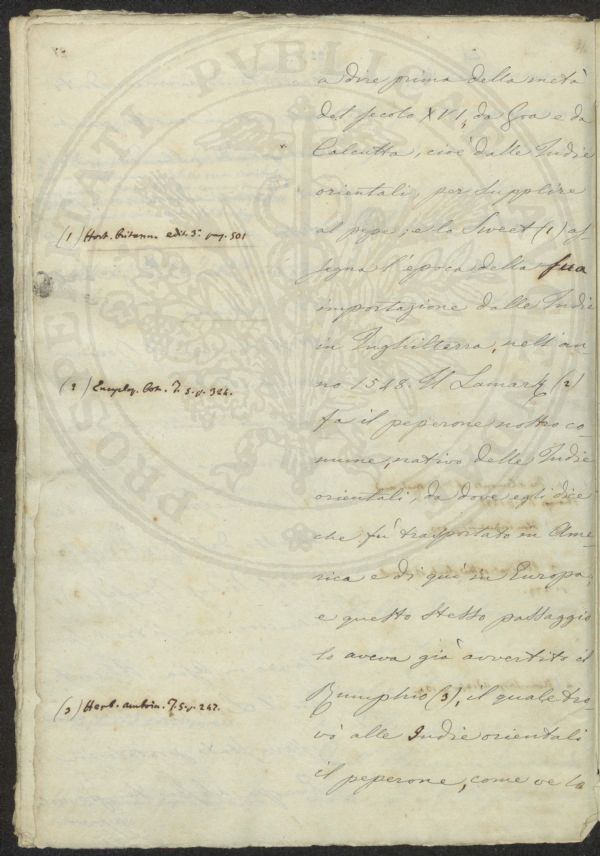 a dire prima della metà
del secolo XVI, da Goa e da
Calcutta, cioè dalle Indie
orientali, per supplire
al pepe; e lo Sweet (1) as-
segna l'epoca della sua
importazione dalle Indie
in Inghilterra, nell'an-
no 1548. Il Lamark (2)
fa il peperone nostro co-
mune, nativo delle Indie
orientali, da dove egli dice
che fù trasportato in Ame-
rica e di quì in Europa,
e questo stesso passaggio
lo aveva già avvertito il
Rumphio (3), il quale tro-
vò alle Indie orientali
il peperone, come ve lo
(1) Hort. britann. edit. 3.ª pag. 501
(2) Encyclop. bot. T. 5. p. 324.
(3) Herb. amboin. T. 5. p. 247.
PROSPERITATI PVBLICAE